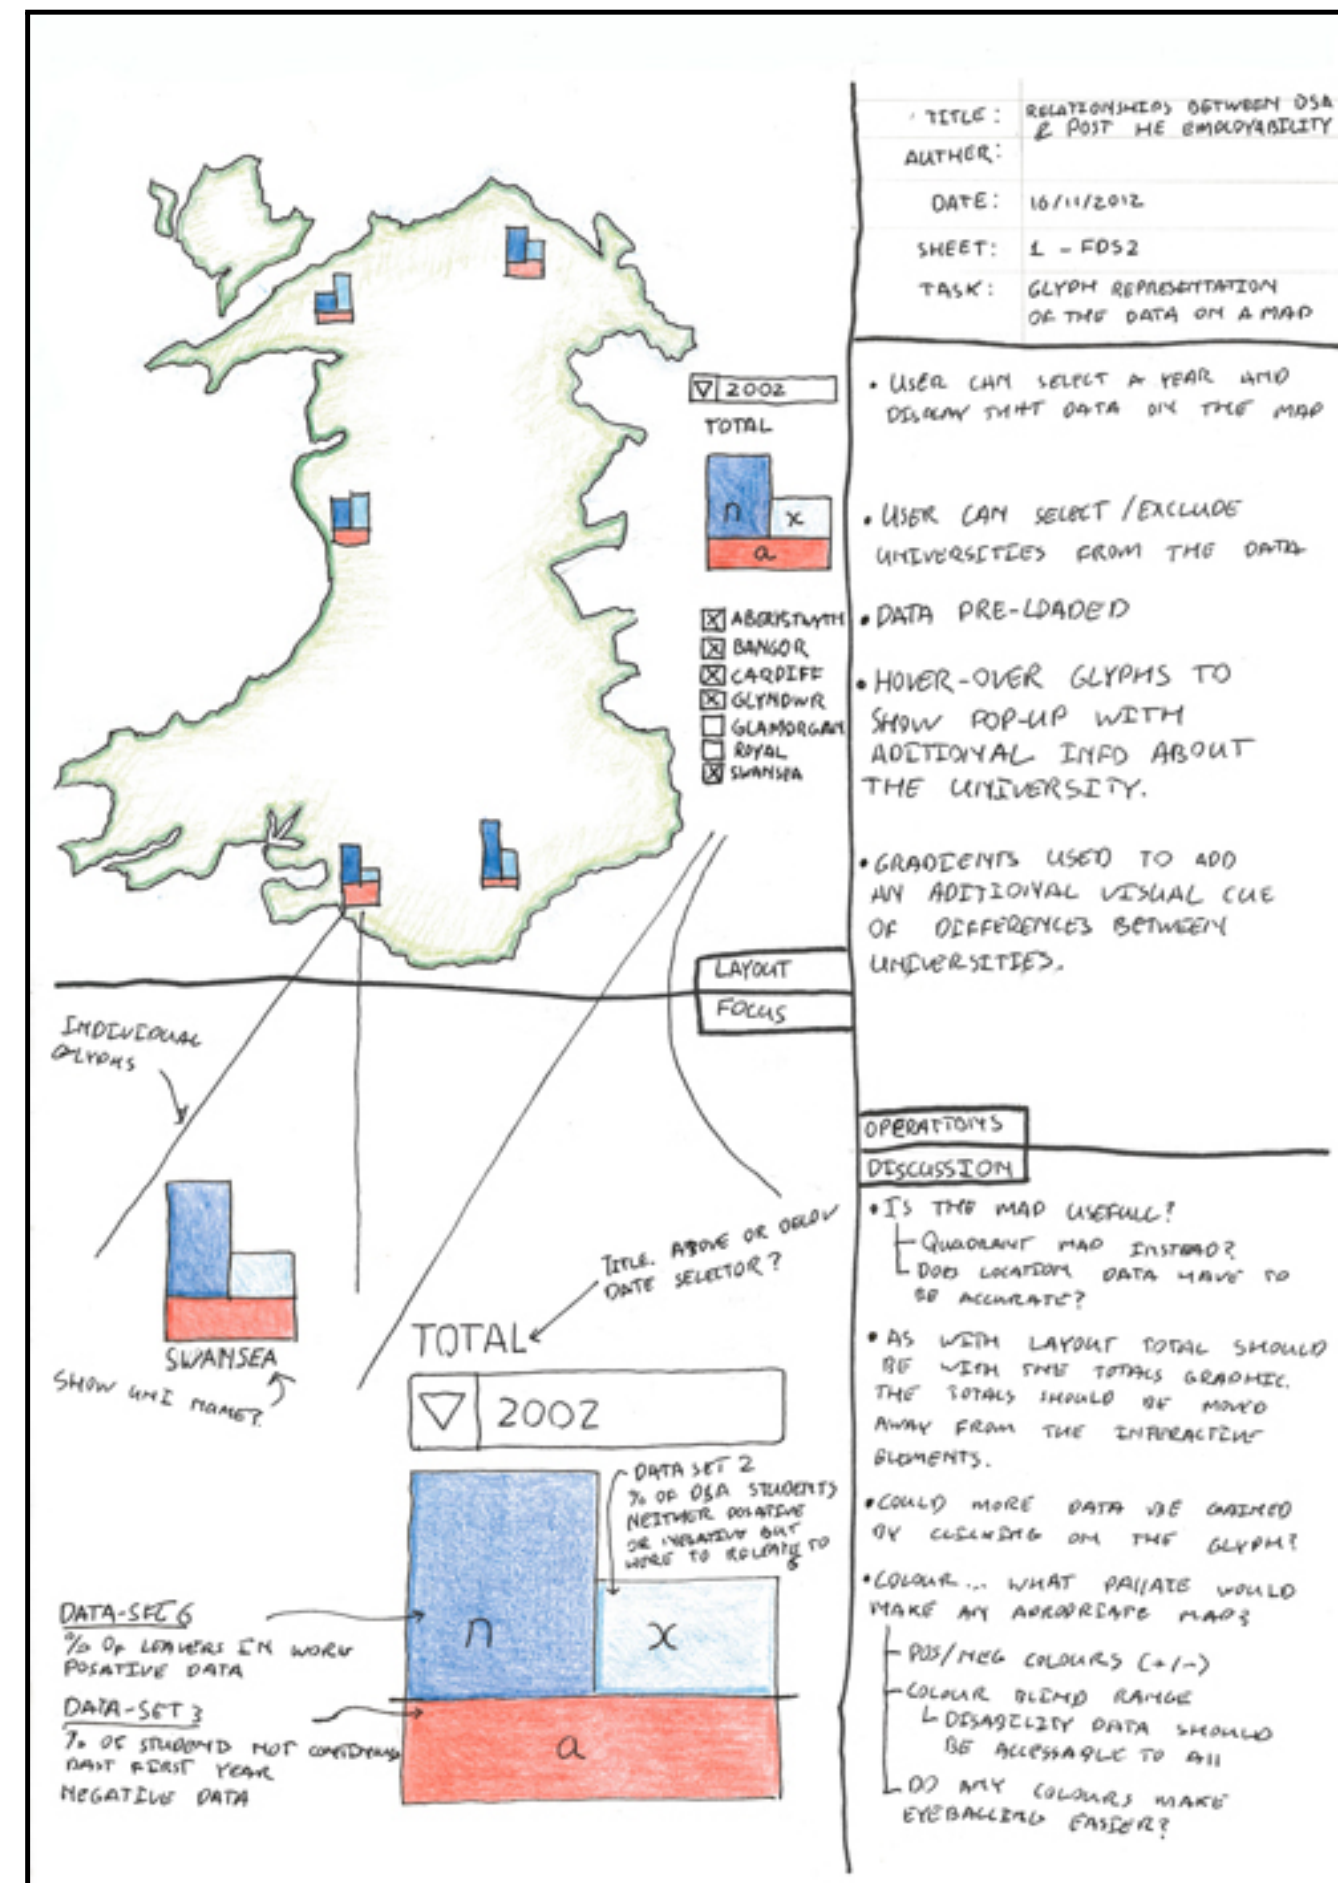 TITLE: RELATIONSHIPS BETWEEN DSA
& POST HE EMPLOYABILITY
AUTHER:
DATE: 16/11/2012
SHEET: 1 - FDS2
TASK: GLYPH REPRESENTATION
OF THE DATA ON A MAP
2002
TOTAL
n
x
a
X ABERISTWYTH
X BANGOR
X CARDIFF
X GLYNDWR
GLAMORGAN
ROYAL
X SWANSEA
LAYOUT
• USER CAN SELECT A YEAR AND
DISPLAY THAT DATA ON THE MAP
• USER CAN SELECT / EXCLUDE
UNIVERSITIES FROM THE DATA
• DATA PRE-LOADED
• HOVER-OVER GLYPHS TO
SHOW POP-UP WITH
ADITIONAL INFO ABOUT
THE UNIVERSITY.
• GRADIENTS USED TO ADD
AN ADITIONAL VISUAL CUE
OF DIFFERENCES BETWEEN
UNIVERSITIES.
OPERATIONS
FOCUS
INDIVIDUAL
GLYPHS
SWANSEA
SHOW UNI NAME?
TITLE. ABOVE OR BELOW
DATE SELECTOR?
TOTAL
2002
DATA SET 2
% OF DSA STUDENTS
NEITHER POSATIVE
OR NEGATIVE BUT
MORE TO RELEATE TO
n
x
a
DATA-SET 6
% OF LEAVERS IN WORK
POSATIVE DATA
DATA-SET 3
% OF STUDENTS NOT CONTINUING
PAST FIRST YEAR
NEGATIVE DATA
DISCUSSION
• IS THE MAP USEFULL?
QUADRANT MAP INSTEAD?
DOES LOCATION DATA HAVE TO
BE ACCURATE?
• AS WITH LAYOUT TOTAL SHOULD
BE WITH THE TOTALS GRAPHIC.
THE TOTALS SHOULD BE MOVED
AWAY FROM THE INTERACTIVE
ELEMENTS.
• COULD MORE DATA BE GAINED
BY CLICKING ON THE GLYPH?
• COLOUR... WHAT PALLATE WOULD
MAKE AN APROPRIATE MAP?
POS/NEG COLOURS (+/-)
COLOUR BLIND RANGE
DISABILITY DATA SHOULD
BE ACCESSABLE TO All
DO ANY COLOURS MAKE
EYEBALLING EASIER?